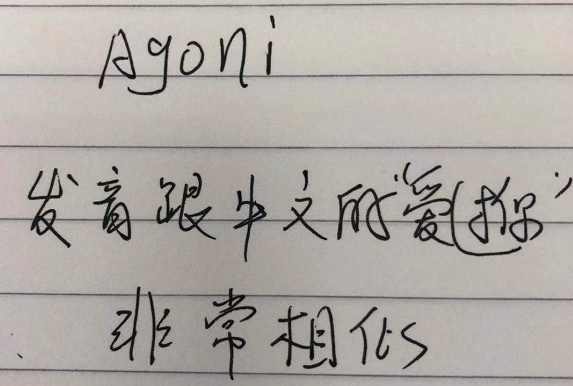 Agoni
发音跟中文的“爱你”
非常相似